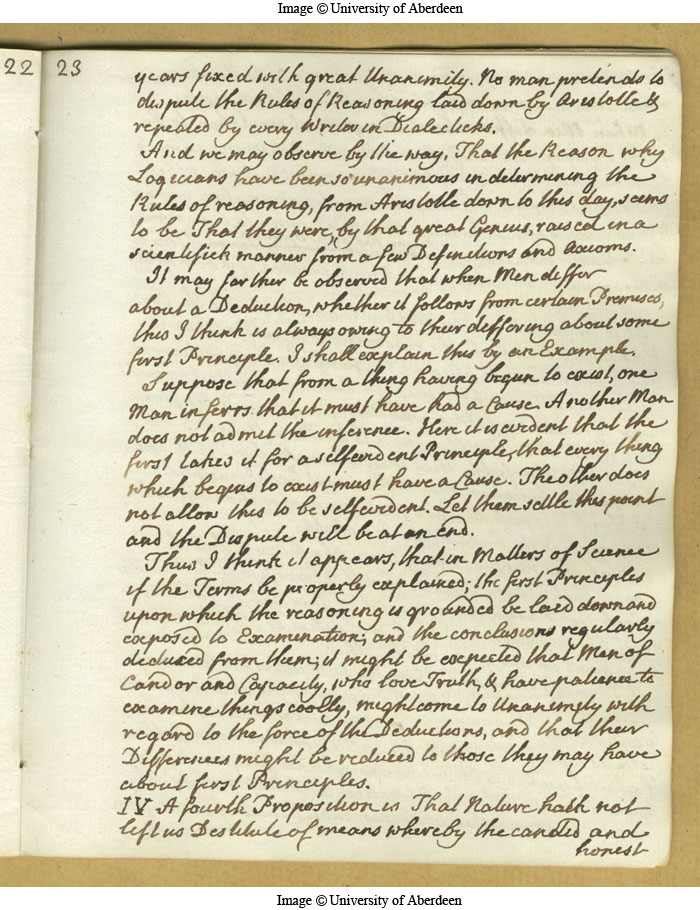 Image © University of Aberdeen
22 23
years fixed with great Unanimity. No man pretends to
dispute the Rules of Reasoning laid down by Aristotle &
repeated by every Writer in Dialecticks.
And we may observe by the way, That the Reason why
Logicians have been so unanimous in determining the
Rules of reasoning, from Aristotle down to this day, seems
to be That they were, by that great Genius, raised in a
scientifick manner from a few Definitions and Axioms.
It may farther be observed that when Men differ
about a Deduction, whether it follows from certain Premises,
this I think is always owing to their differing about some
first Principle. I shall explain this by an Example.
Suppose that from a thing having begun to exist, one
Man inferrs that it must have had a Cause. Another Man
does not admit the inference. Here it is evident that the
first takes it for a selfevident Principle, that every thing
which begins to exist must have a Cause. The other does
not allow this to be selfevident. Let them settle this point
and the Dispute will be at an end.
Thus I think it appears, that in Matters of Science
if the Terms be properly explained; the first Principles
upon which the reasoning is grounded be laid down and
exposed to Examination; and the conclusions regularly
deduced from them; it might be expected that Men of
Candor and Capacity, who love Truth, & have patience to
examine things coolly, might come to Unanimity with
regard to the force of the Deductions, and that their
Differences might be reduced to those they may have
about first Principles.
IV A fourth Proposition is That Nature hath not
left us Destitute of means whereby the candid and
honest
Image © University of Aberdeen